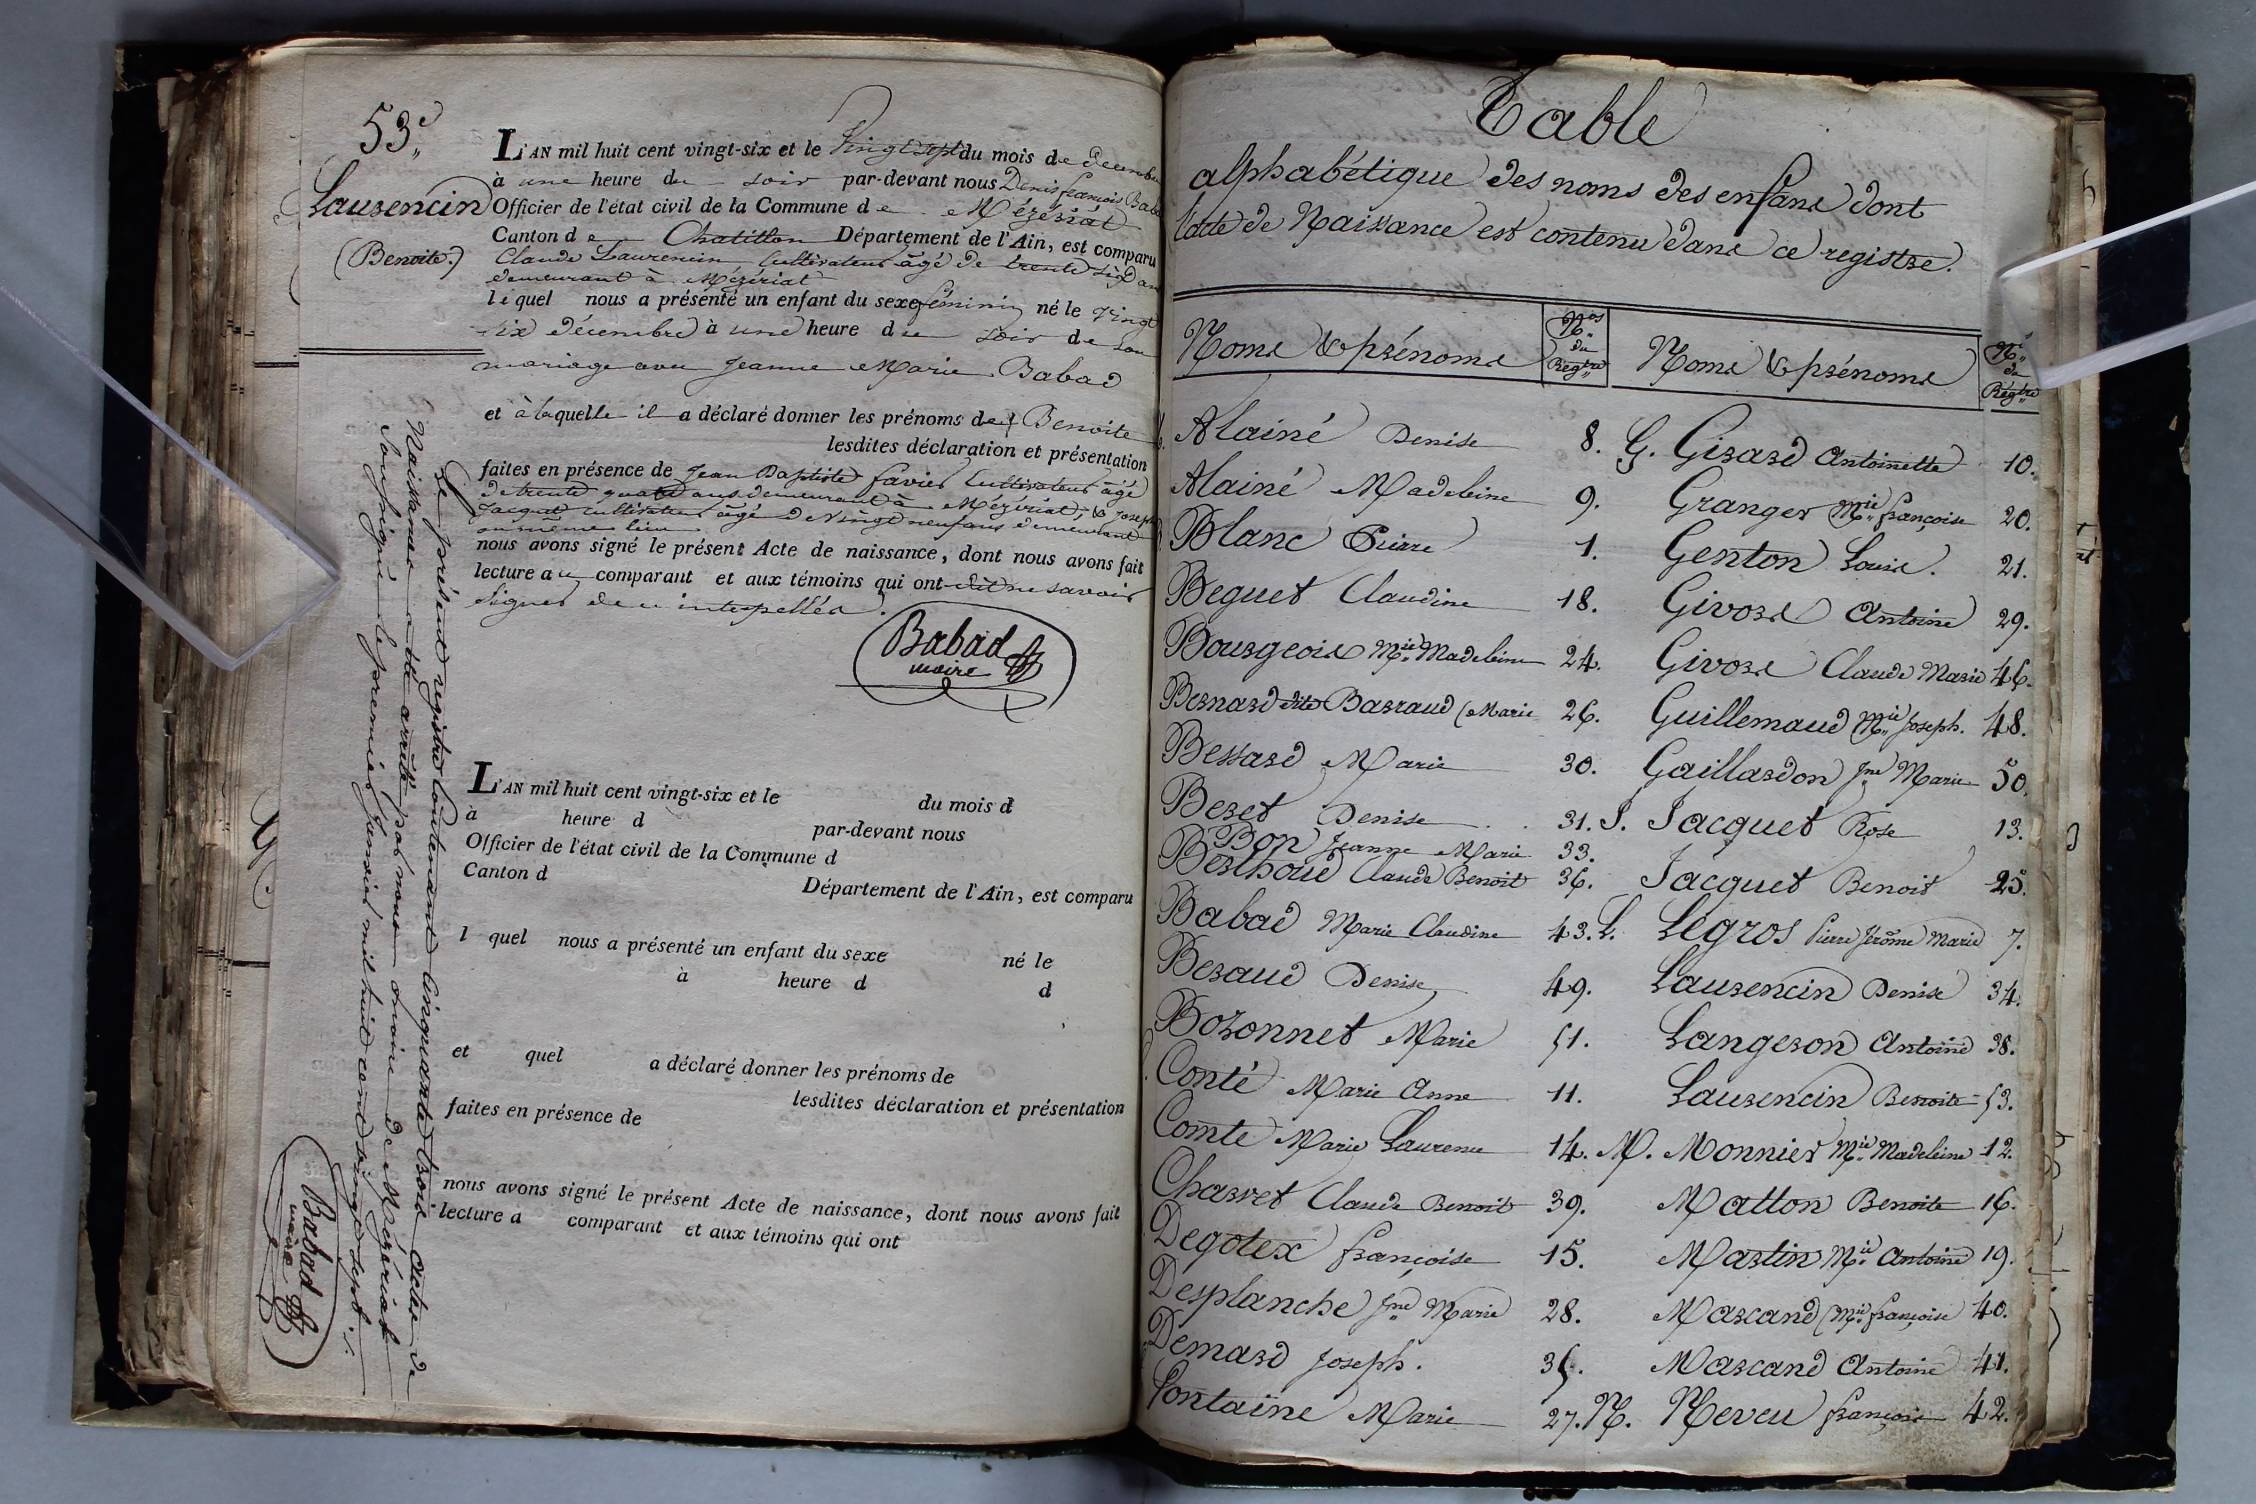 53.e
Laurencin
(Benoite.)
L'AN mil huit cent vingt-six et le Vingt sept du mois de décembre
à une heure du soir par-devant nous Denis françois Babad
Officier de l'état civil de la Commune de Mézériat
Canton de Chatillon Département de l'Ain, est comparu
Claude Laurencin Cultivateur âgé de trente six ans
demeurant à Mézériat
lequel nous a présenté un enfant du sexe féminin né le vingt
six décembre à une heure du soir de son
mariage avec Jeanne Marie Babad
et à laquelle il a déclaré donner les prénoms de Benoite
lesdites déclaration et présentation
faites en présence de Jean Baptiste favier Cultivateur âgé
de trente quatre ans demeurant à Mézériat, & Joseph
Jacquet cultivateur âgé de vingt neuf ans demeurant
au même lieu
nous avons signé le présent Acte de naissance, dont nous avons fait
lecture au comparant et aux témoins qui ont dit ne savoir
signer de ce interpellés.
Babad
maire
L'AN mil huit cent vingt-six et le du mois d
à heure d par-devant nous
Officier de l'état civil de la Commune d
Canton d Département de l'Ain, est comparu
l quel nous a présenté un enfant du sexe né le
à heure d d
et quel a déclaré donner les prénoms de
lesdites déclaration et présentation
faites en présence de
nous avons signé le présent Acte de naissance, dont nous avons fait
lecture a comparant et aux témoins qui ont
Le présent registre Contenant Cinquante trois Actes de
Naissance a été arrêté par nous maire de Mézériat
Soussigné le premier Janvier mil huit cent vingt sept.
Babad
maire
Table
alphabétique des noms des enfans dont
l'acte de Naissance est contenu dans ce registre.
Noms & prénoms Nos du Regtre Noms & prénoms Nos du Régtre
Alainé Denise 8. G. Girard Antoinette 10.
Alainé Madeleine 9. Granger Mie françoise 20.
Blanc Pierre 1. Genton Louis. 21.
Beguet Claudine 18. Givors Antoine 29.
Bourgeois Mie Madeleine 24. Givors Claude Marie 46.
Bernard dite Barraud (Marie 26. Guillemaud Mie Joseph. 48.
Bessard Marie 30. Gaillardon Jne Marie 50.
Beret Denise 31. J. Jacquet Rose 13.
Bon Jeanne Marie 33.
Berthoud Claude Benoit 36. Jacquet Benoit 25.
Babad Marie Claudine 43. L. Legros Pierre Jérôme Marie 7.
Beraud Denise 49. Laurencin Denise 34.
Bozonnet Marie 51. Langeron Antoine 38.
Conté Marie Anne 11. Laurencin Benoite 53.
Comte Marie Laurence 14. M. Monnier Mie Madeleine 12.
Charvet Claude Benoit 39. Matton Benoite 16.
Degolex françoise 15. Martin Mie Antoine 19.
Desplanche Jne Marie 28. Marcand (Mie françoise 40.
Demard Joseph. 35. Marcand Antoine 41.
Fontaine Marie 27. N. Neveu françois 42.